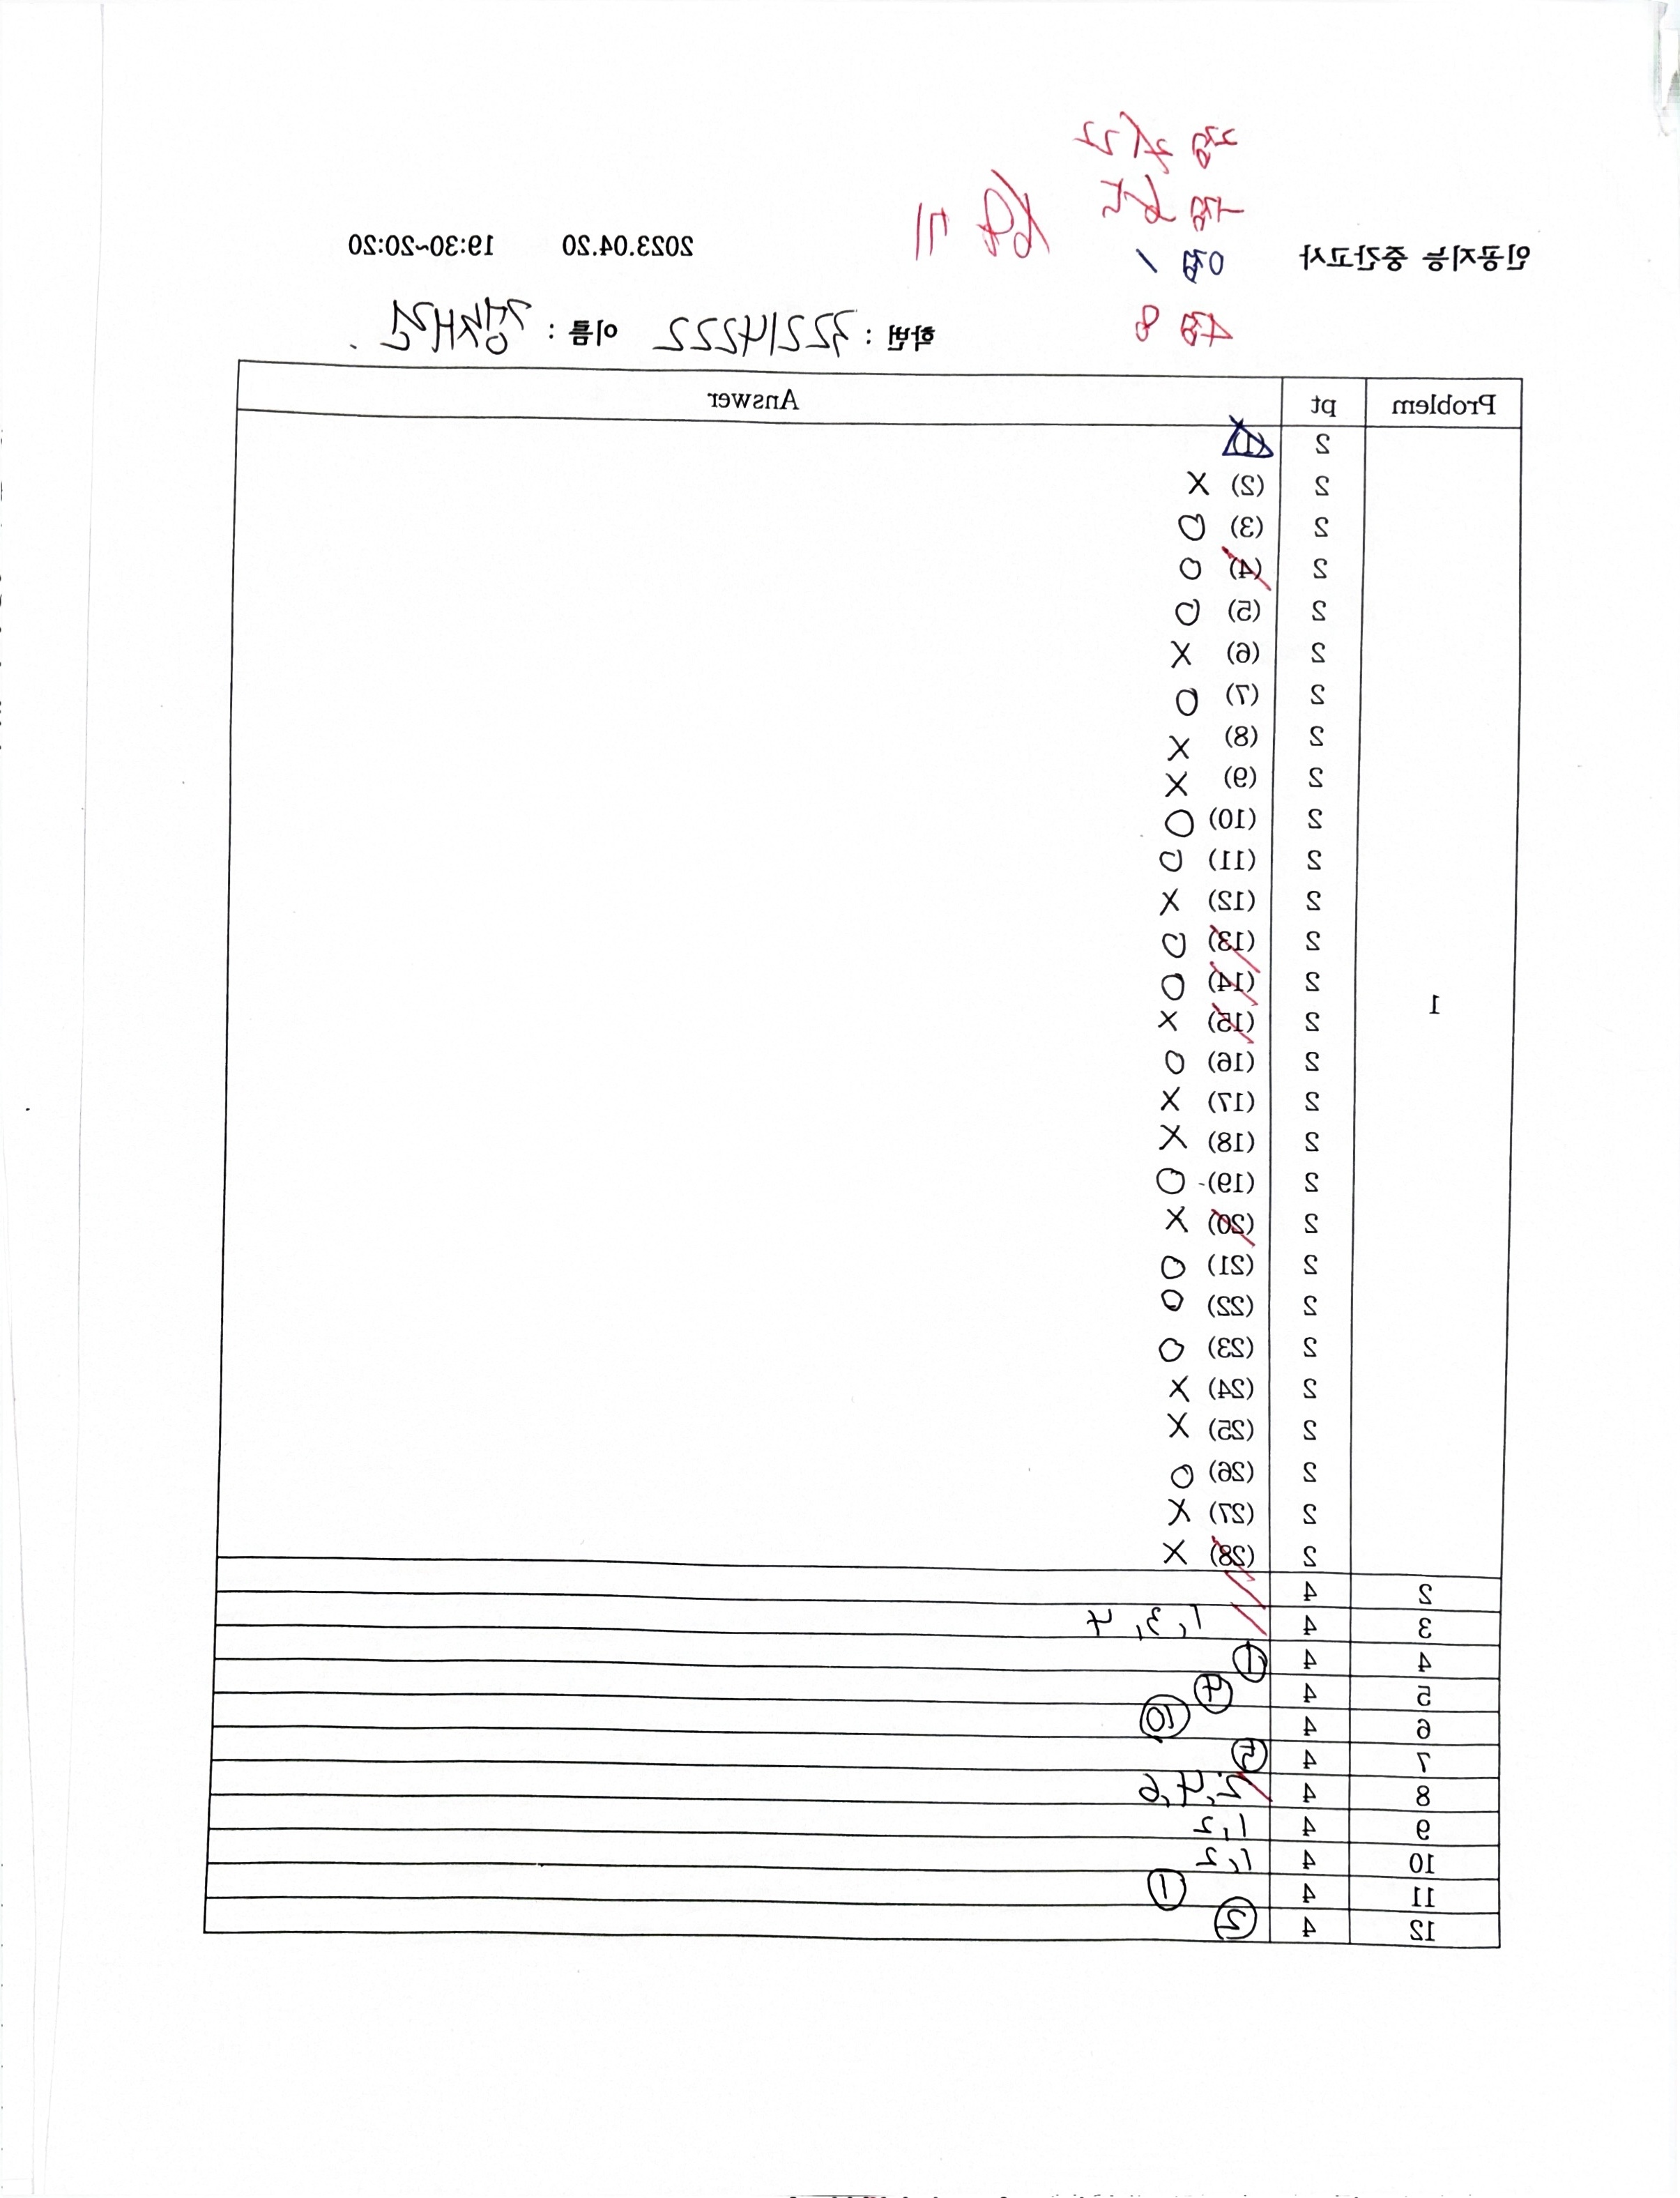 2점 22
-1점
인공지능 중간고사 0점 1 71 2023.04.20 19:30~20:20
4점 8
학번 : 32214222 이름 :
Problem pt Answer
1
2 (1)
2 (2) X
2 (3) O
2 (4) O
2 (5) O
2 (6) X
2 (7) O
2 (8) X
2 (9) X
2 (10) O
2 (11) O
2 (12) X
2 (13) O
2 (14) O
2 (15) X
2 (16) O
2 (17) X
2 (18) X
2 (19) O
2 (20) X
2 (21) O
2 (22) O
2 (23) O
2 (24) X
2 (25) X
2 (26) O
2 (27) X
2 (28) X
2 4
3 4 1, 3, 4
4 4 ①
5 4 ④
6 4 ⑩
7 4 ⑤
8 4 2, 4, 6
9 4 1, 2
10 4 1, 2
11 4 ①
12 4 ②